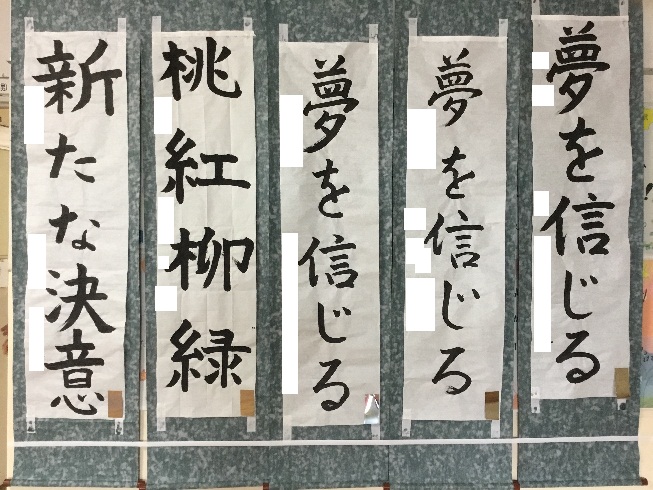 夢を信じる
夢を信じる
夢を信じる
桃紅柳緑
新たな決意